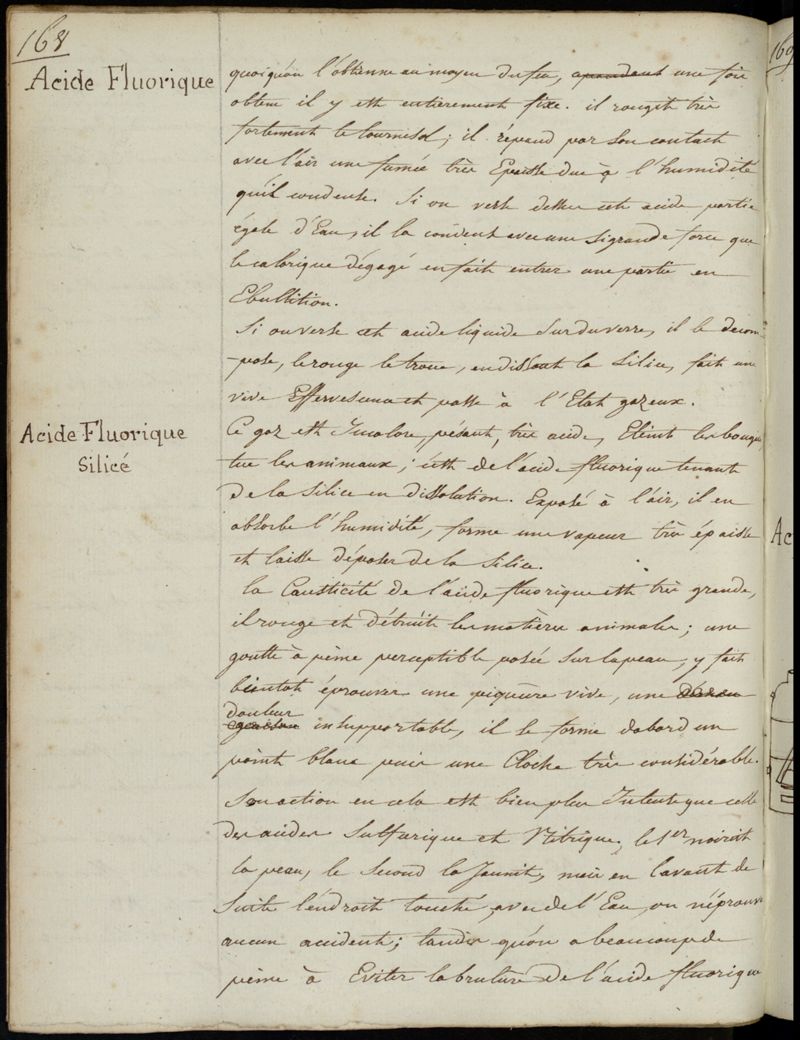 168
Acide Fluorique
quoiqu'on l'obtienne au moyen du feu, une fois
obtenu il y est entierement fixe. il rougit très
fortement le tournesol; il répand par son contact
avec l'air une fumée très Epaisse due à l'humidité
qu'il condense. Si on verse dessus cet acide partie
égale d'Eau, il la convient avec une si grande force que
le calorique dégagé en fait entrer une partie en
Ebullition.
Si on verse cet acide liquide sur du verre, il le décom-
-pose, le ronge le troue, en dissout la Silice, fait une
vive Effervescence et passe à l'Etat gazeux.
Acide Fluorique
Silicé
Ce gaz est Incolore, pésant, très acide, Eteint les bougies,
tue les animaux; c'est de l'acide fluorique tenant
de la Silice en dissolution. Exposé à l'air, il en
absorbe l'humidité, forme une vapeur très épaisse
et laisse déposer de la Silice.
la Causticité de l'acide fluorique est très grande,
il ronge et détruit les matières animales; une
goutte à pèine perceptible posée sur la peau, y fait
bientot éprouver une piqûre vive, une
douleur
insupportable, il se forme dabord un
point blanc puis une Cloche très considérable.
Son action en cela est bien plus Intense que celle
des acides Sulfurique et Nitrique, le 1er noircit
la peau, le Second la Jaunit, mais en lavant de
Suite l'endroit touché avec de l'Eau, on n'éprouve
aucun accident; tandis qu'on a beaucoup de
pèine à Eviter la brulure de l'acide fluorique
169
Ac